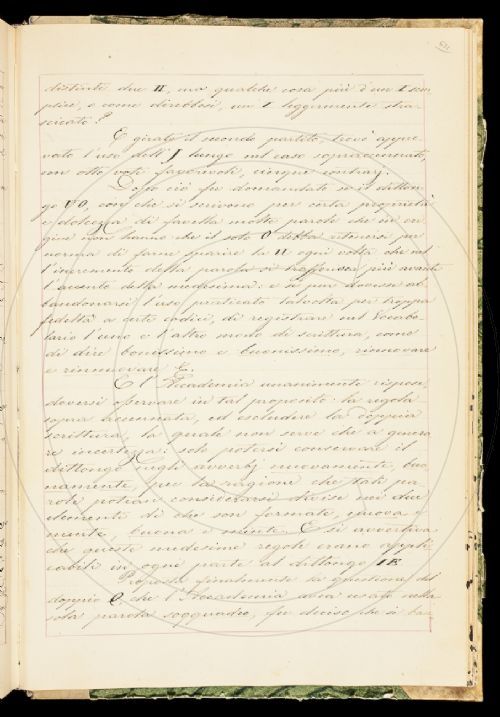 distinte due II, ma qualche cosa più d'un I sem
plice, e come direbbesi, un I leggermente stra
scicato?
E girato il secondo partito, trovò appro
vato l'uso dell'J lungo nel caso sopraccennato,
con otto voti favorevoli, cinque contrarj.
Dopo ciò fu domandato se il ditton
go UO, con che si scrivono per certa proprietà
e dolcezza di favella molte parole che in ori
gine non hanno che il solo O debba ritenersi per
norma di farne sparire la U ogni volta che nel
l'incremento della parola si trasporta più avanti
l'accento della medesima: e se pur dovesse ab
bandonarsi l'uso praticato talvolta per troppa
fedeltà a certi codici, di registrare nel Vocabo
lario l'uno e l'altro modo di scrittura, come
di dire bonissimo e buonissimo, rinnovare
e rinnuovare &c.
E l'Accademia unanimente rispose
doversi osservare in tal proposito la regola
sopra accennata, ed escludere la doppia
scrittura, la quale non serve che a genera
re incertezza: solo potersi conservare il
dittongo negli avverbj nuovamente, buo
namente, per la ragione che tali pa
role potean considerarsi divise nei due
elementi di che son formate, nuova e
mente, buona e mente. E si avvertiva
che queste medesime regole erano appli
cabili in ogni parte al dittongo IE.
Proposta finalmente la questione del
doppio Q, che l'Accademia avea usato nella
sola parola soqquadro, fu deciso che si ba